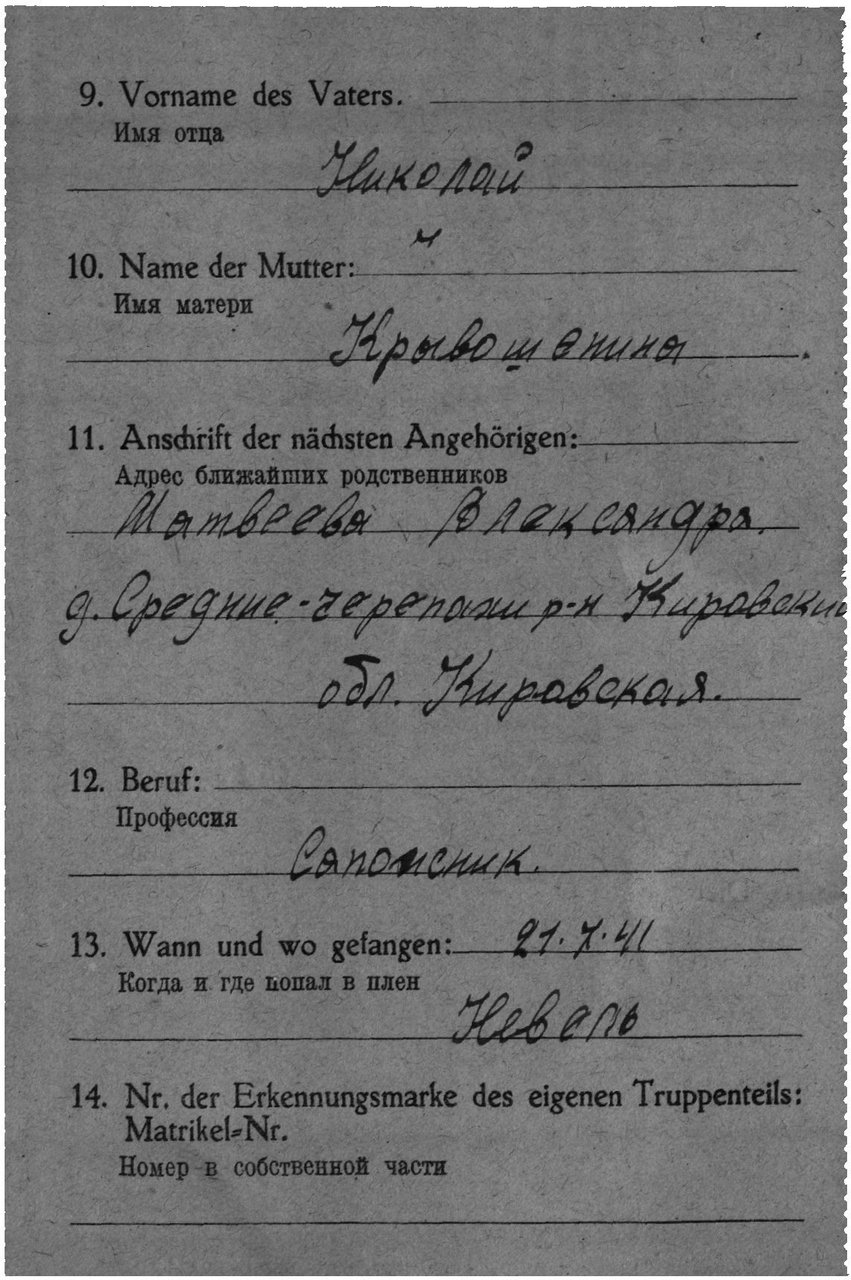 9. Vorname des Vaters.
Имя отца
Николай
10. Name der Mutter:
Имя матери
Крывошеина
11. Anschrift der nächsten Angehörigen:
Адрес ближайших родственников
Матвеева Александра.
д. Средние-черепахи р-н Кировский
обл. Кировская.
12. Beruf:
Профессия
Сапожник.
13. Wann und wo gefangen: 21.7.41
Когда и где попал в плен
Невель
14. Nr. der Erkennungsmarke des eigenen Truppenteils:
Matrikel-Nr.
Номер в собственной части